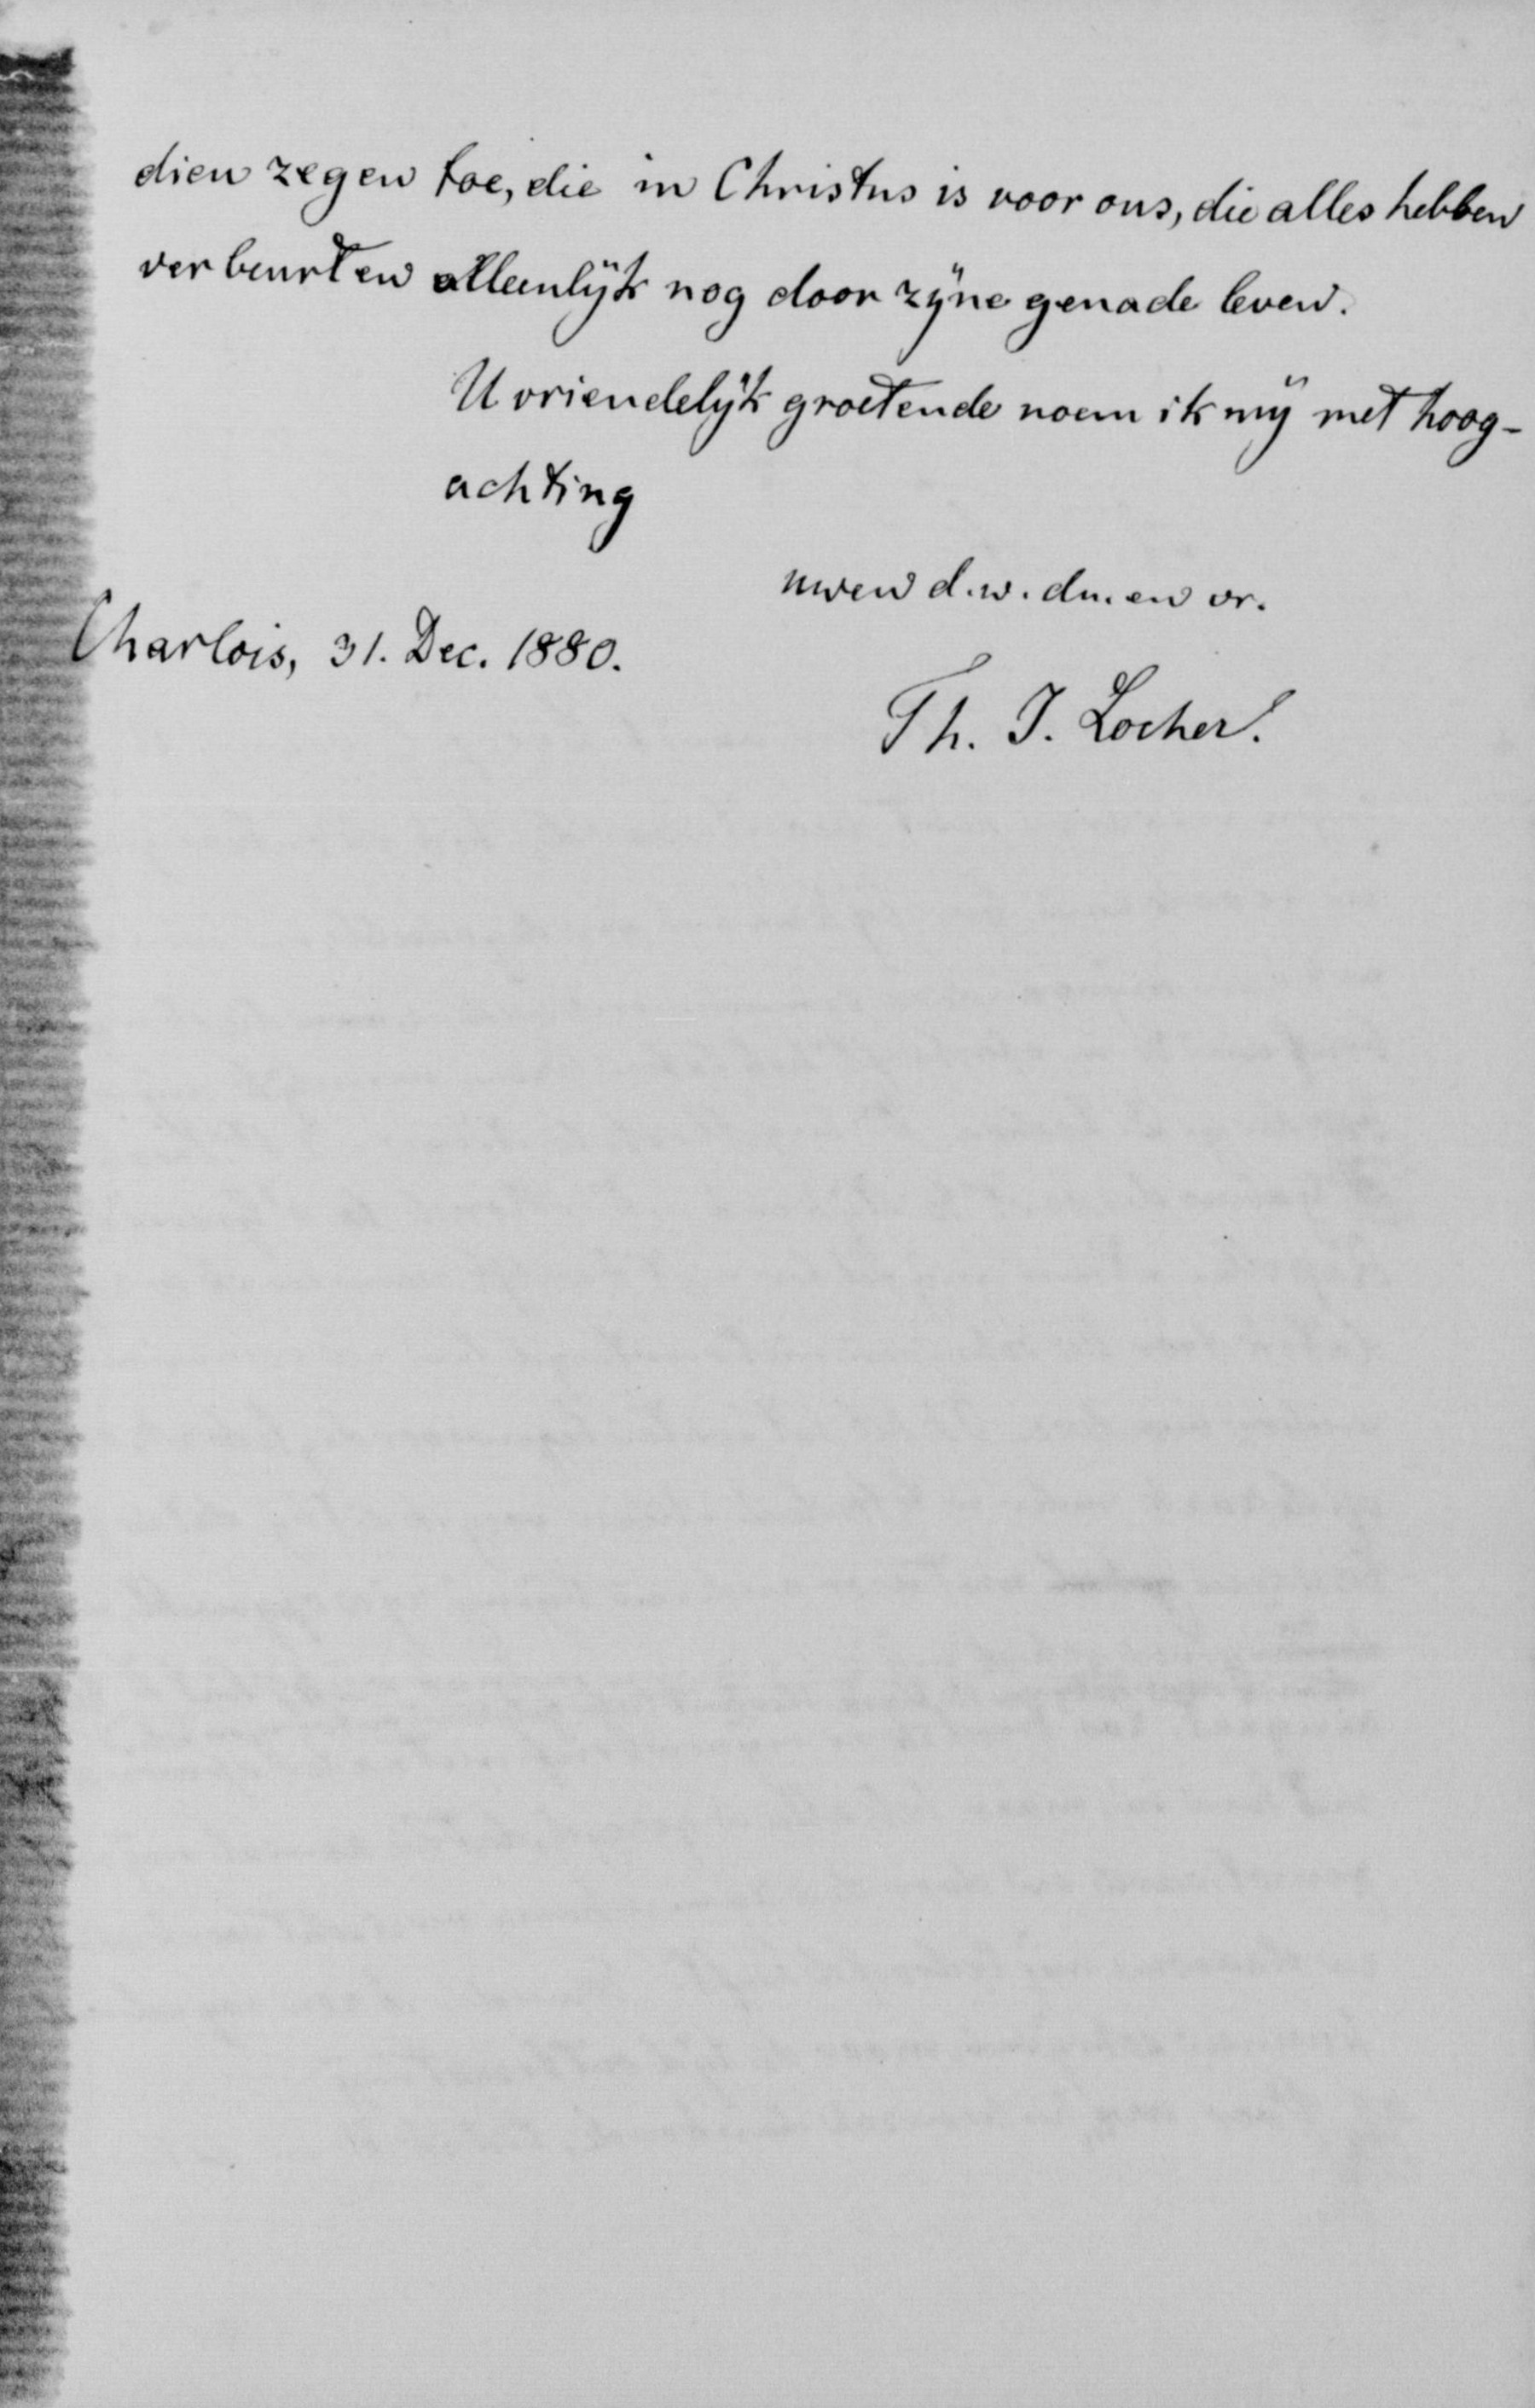 dien zegen toe, die in Christus is voor ons, die alles hebben
verbeurt en alleenlijk nog door zijne genade leven.
U vriendelijk groetende noem ik mij met hoog-
achting
uwen d.w. dn. en vr.
Charlois, 31. Dec. 1880.
Th. J. Locher.